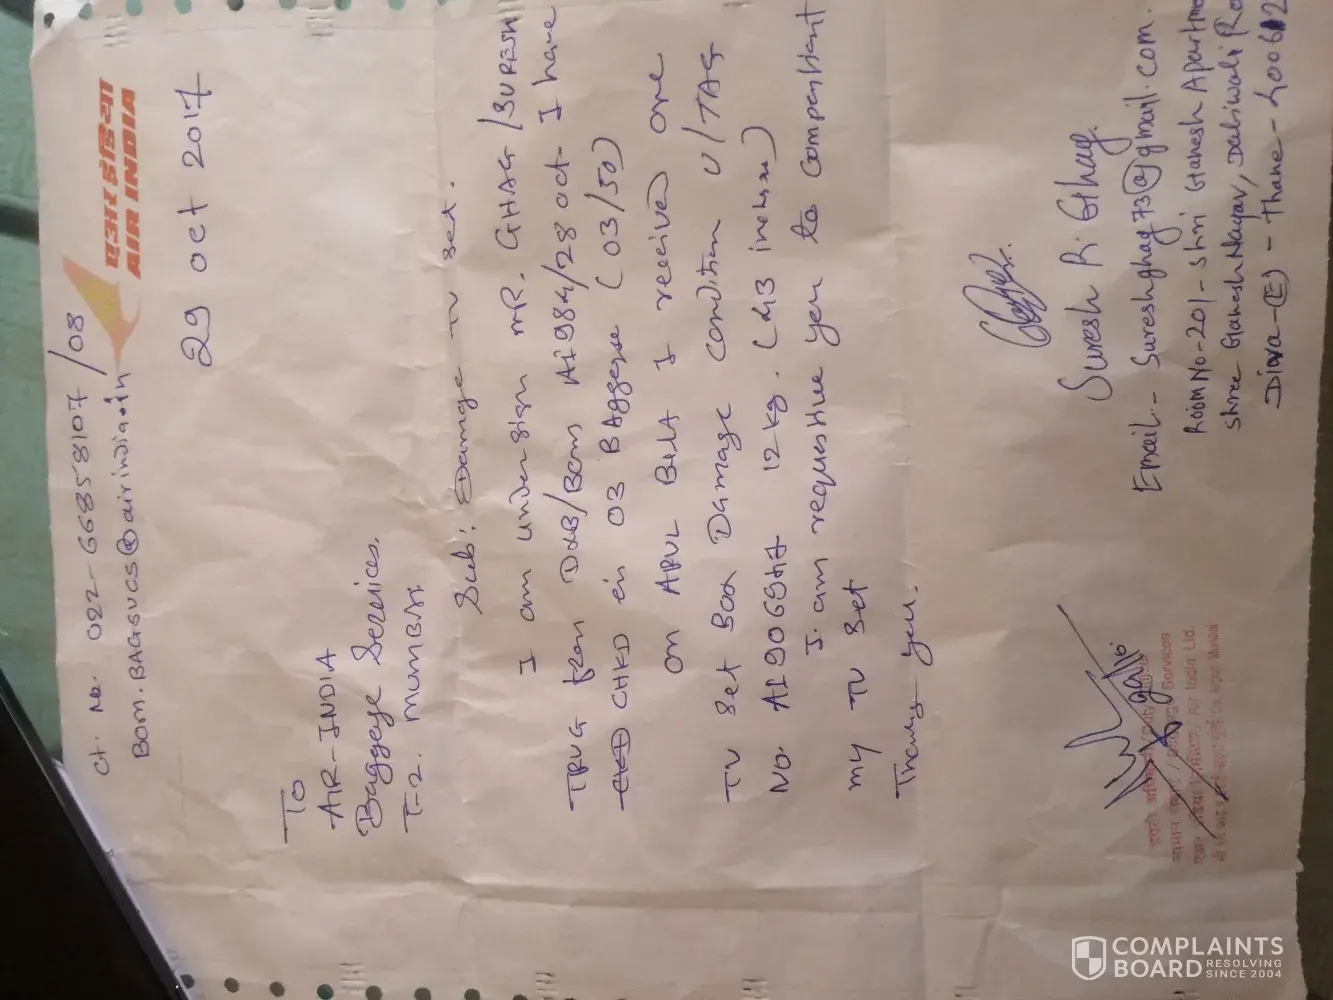 Ct. No. 022-66858107/08
Bom.BAGSVCS@airindia.in
एअर इंडिया
AIR INDIA
29 oct 2017
TO
AIR-INDIA
Baggage Services.
T-2. MUMBAI.
Sub: Damage TV Set.
I am undersign MR. GHAG/SURESH
TRVG from DXB/Bom AI984/28 oct. I have
CHKD in 03 BAggage (03/50)
on ARVL Belt I received one
TV Set Box Damage condition U/TAG
No. 12 kg. (43 inches)
I am requestive you to
my TV Set
Thank you.
Suresh R. Ghag.
Email:- Sureshghag73@gmail.com.
Room No-201- Shri Ganesh Apartme
Shree Ganesh Nagar, Ro
Diva-(E)-Thane-400612
Services
/ Air India Ltd.
COMPLAINTS
BOARD RESOLVING
SINCE 2004